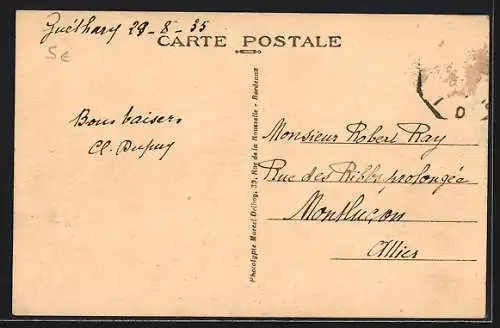 Guéthary 29-8-35
5e
CARTE POSTALE
Bons baisers
Cl. Dupuy
Phototypie Marcel Delboy, 33, Rue de la Rousselle - Bordeaux
Monsieur Robert Ray
Rue des Ribbs prolongée
Montluçon
Allier